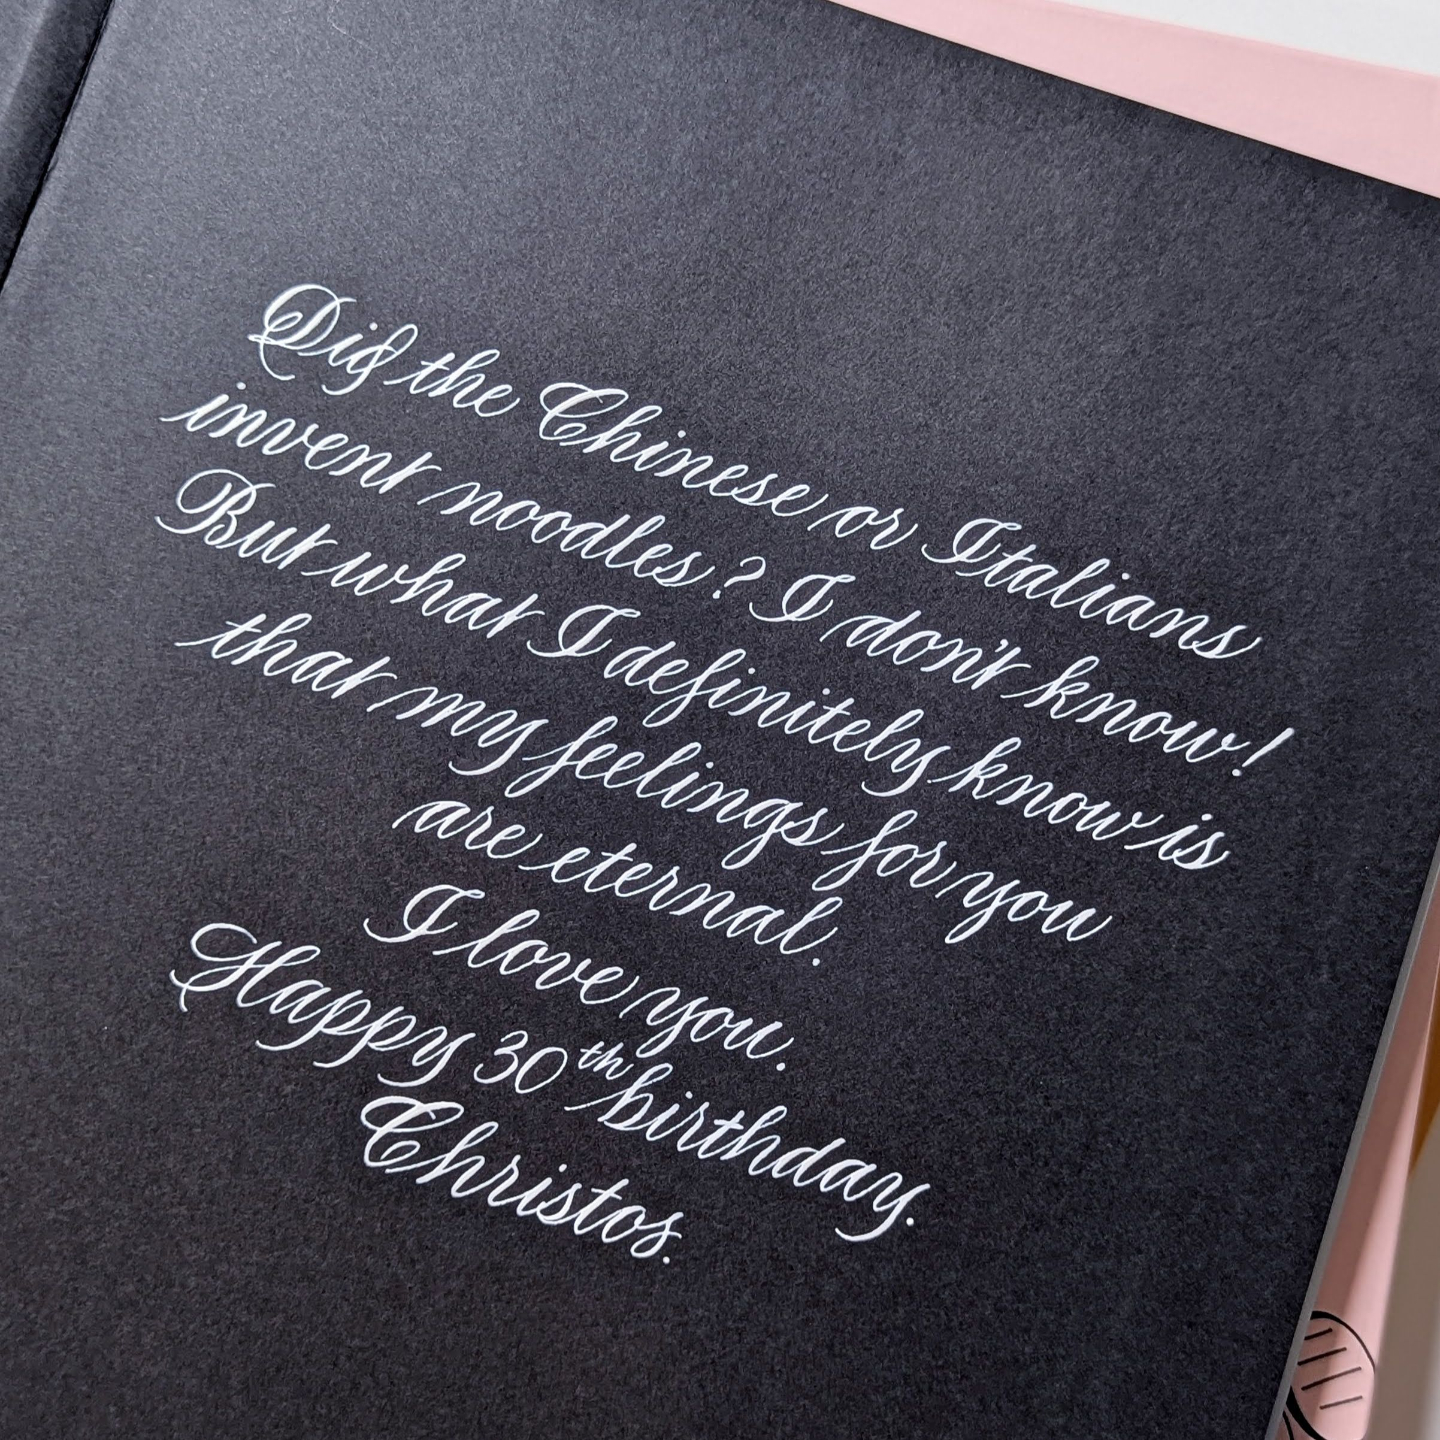 Did the Chinese or Italians
invent noodles? I don't know!
But what I definitely know is
that my feelings for you
are eternal.
I love you.
Happy 30th birthday.
Christos.